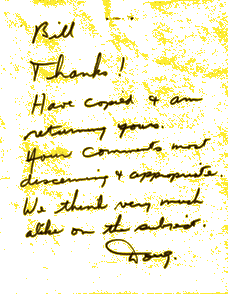 Bill
Thanks!
Have copied & am
returning yours.
Your comments most
discerning & appropriate.
We think very much
alike on the subject.
Doug.